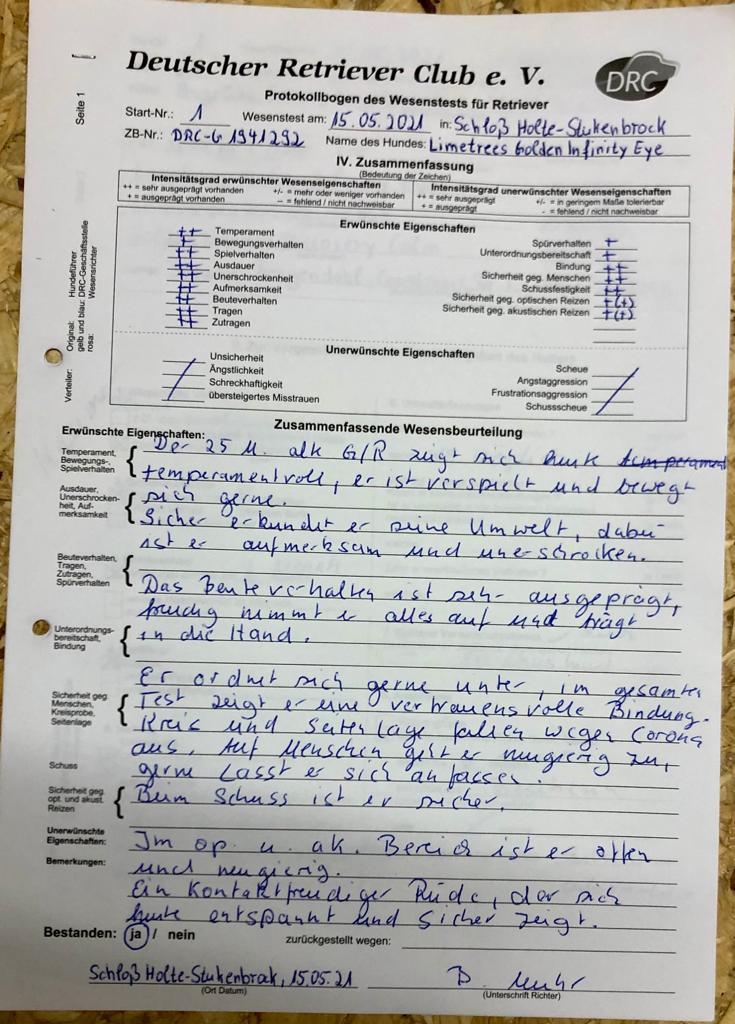 Deutscher Retriever Club e. V.
DRC
Protokollbogen des Wesenstests für Retriever
Seite 1
Start-Nr.: 1 Wesenstest am: 15.05.2021 in: Schloß Holte-Stukenbrock
ZB-Nr.: DRC-G 1941292 Name des Hundes: Limetrees Golden Infinity Eye
IV. Zusammenfassung
(Bedeutung der Zeichen)
Intensitätsgrad erwünschter Wesenseigenschaften
++ = sehr ausgeprägt vorhanden +/- = mehr oder weniger vorhanden
+ = ausgeprägt vorhanden -- = fehlend / nicht nachweisbar
Intensitätsgrad unerwünschter Wesenseigenschaften
++ = sehr ausgeprägt +/- = in geringem Maße tolerierbar
+ = ausgeprägt - = fehlend / nicht nachweisbar
Verteiler: Original: Hundeführer
gelb und blau: DRC-Geschäftsstelle
rosa: Wesensrichter
Erwünschte Eigenschaften
++ Temperament
+ Bewegungsverhalten
++ Spielverhalten
++ Ausdauer
++ Unerschrockenheit
++ Aufmerksamkeit
++ Beuteverhalten
++ Tragen
++ Zutragen
Spürverhalten +
Unterordnungsbereitschaft +
Bindung ++
Sicherheit geg. Menschen ++
Schussfestigkeit ++
Sicherheit geg. optischen Reizen +(+)
Sicherheit geg. akustischen Reizen +(+)
Unerwünschte Eigenschaften
Unsicherheit
Ängstlichkeit
Schreckhaftigkeit
übersteigertes Misstrauen
Scheue
Angstaggression
Frustrationsaggression
Schussscheue
Zusammenfassende Wesensbeurteilung
Erwünschte Eigenschaften:
Temperament,
Bewegungs-,
Spielverhalten
Der 25 M. alte G/R zeigt sich heute
temperamentvoll, er ist verspielt und bewegt
sich gerne.
Ausdauer,
Unerschrocken-
heit, Auf-
merksamkeit
Sicher erkundet er seine Umwelt, dabei
ist er aufmerksam und unerschrocken.
Beuteverhalten,
Tragen,
Zutragen,
Spürverhalten
Das Beuteverhalten ist sehr ausgeprägt,
freudig nimmt er alles auf und trägt
in die Hand.
Unterordnungs-
bereitschaft,
Bindung
Er ordnet sich gerne unter, im gesamten
Test zeigt er eine vertrauensvolle Bindung.
Sicherheit geg.
Menschen,
Kreisprobe,
Seitenlage
Kreis und Seitenlage fallen wegen Corona
aus. Auf Menschen geht er neugierig zu,
gerne lässt er sich anfassen.
Schuss
Beim Schuss ist er sicher.
Sicherheit geg.
opt. und akust.
Reizen
Im op. u. ak. Bereich ist er offen
und neugierig.
Unerwünschte
Eigenschaften:
Bemerkungen:
Ein Kontaktfreudiger Rüde, der sich
heute entspannt und sicher zeigt.
Bestanden: ja / nein zurückgestellt wegen:
Schloß Holte-Stukenbrock, 15.05.21
(Ort Datum)
(Unterschrift Richter)